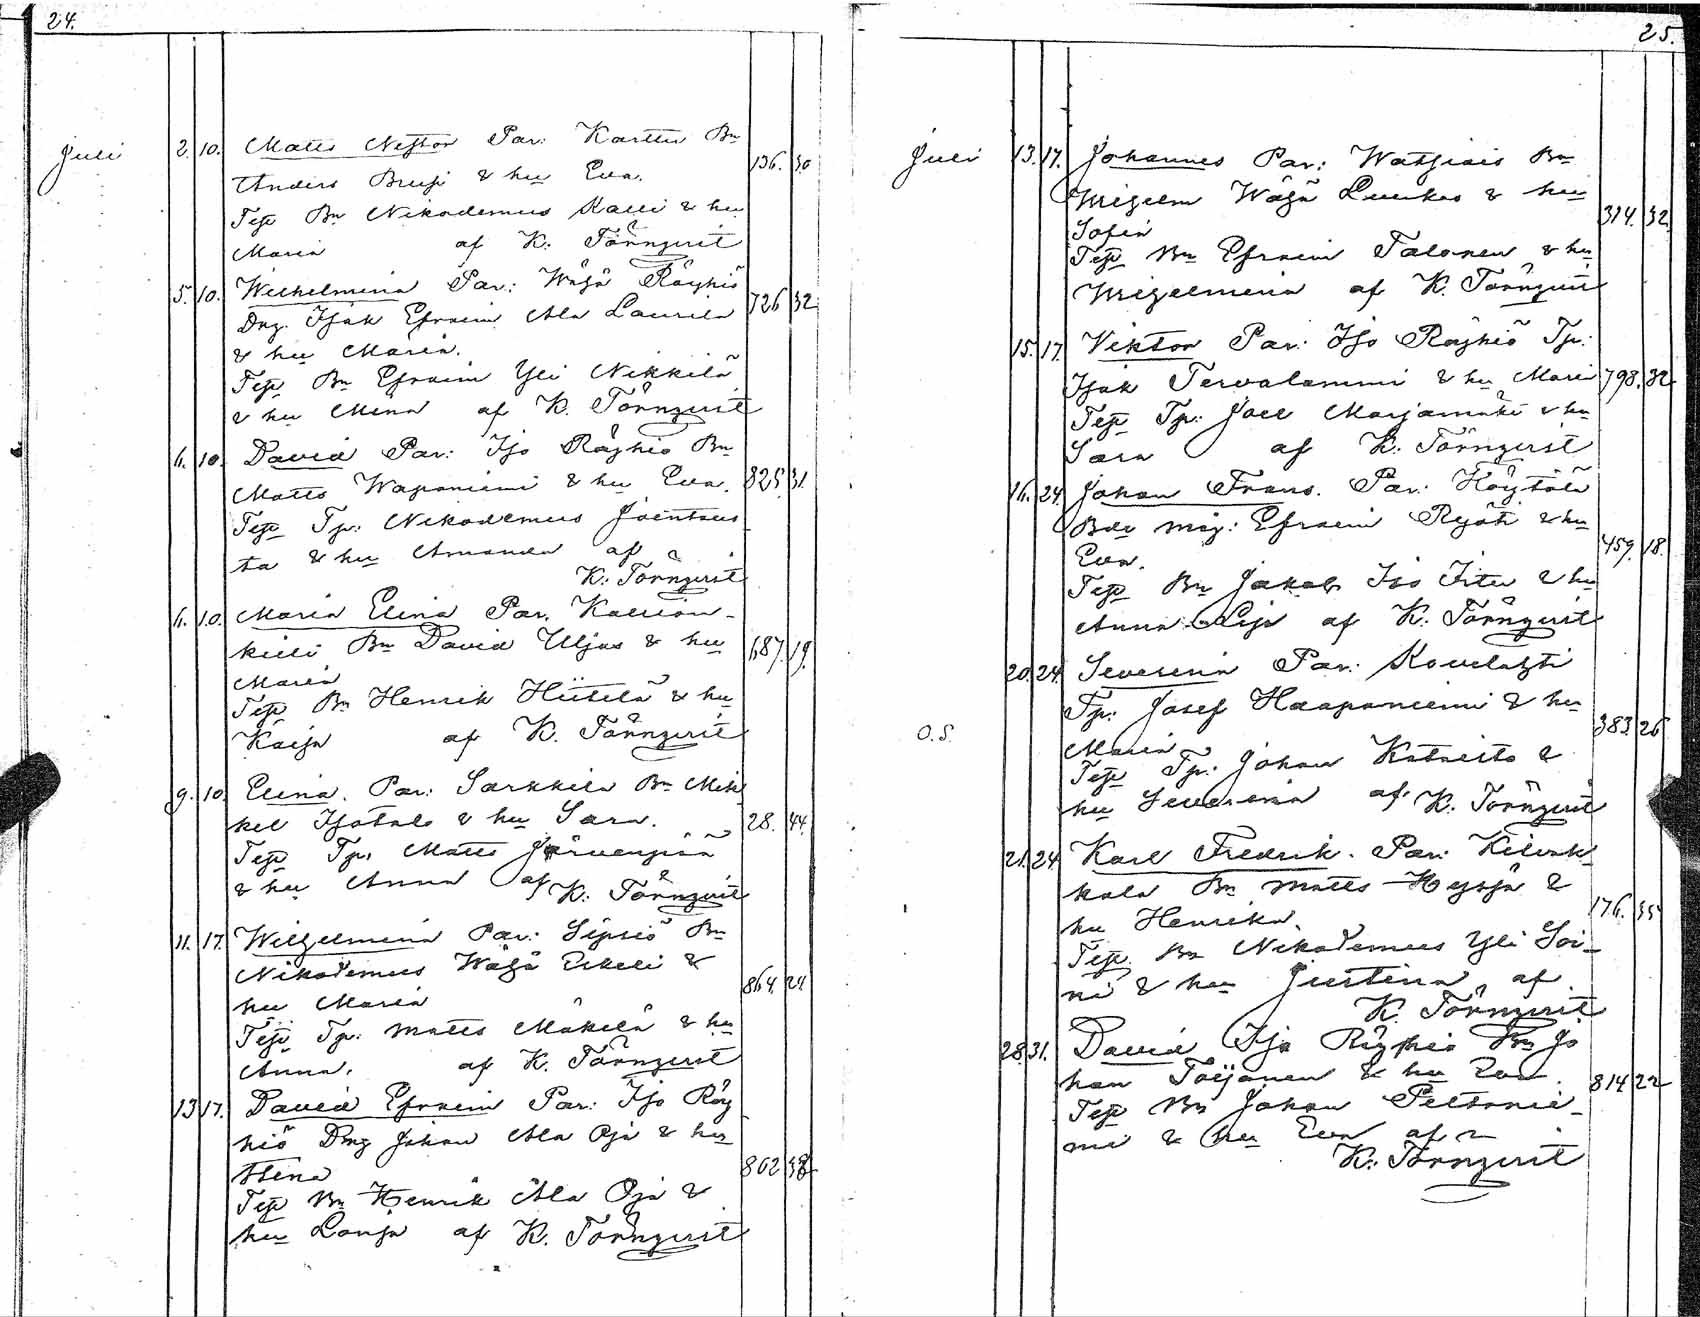 24.
Juli
2. 10. Matts Nestor Par: Karttu Bn
Anders Brusi & hu Eva. 136. 30
Test Bn Nikodemus Kalli & hu
Maria af K. Törnqvist
5. 10. Wilhelmina Par: Wähä Röyhiö
Drg. Isak Efraim Ala Laurila 726 32
& hu Maria.
Test Bn Efraim Yli Nikkilä
& hu Mina af K. Törnqvist
6. 10. David Par: Iso Röyhiö Bn
Matts Wapaniemi & hu Eva. 825. 31.
Test Tp: Nikodemus Joentaus
ta & hu Amanda af
K: Törnqvist
6. 10. Maria Elina Par. Kallion-
kieli Bn David Uljas & hu 687. 19.
Maria
Test Bn Henrik Hietela & hu
Kaisa af K. Törnqvist
9. 10. Elina. Par: Sarkkila Bn Mik
kel Isotalo & hu Sara. 28. 44.
Test Tp. Matts Järvenpää
& hu Anna af K. Törnqvist
11. 17. Wilhelmina Par: Sipiö Bn
Nikodemus Wähä Erkeli & 864. 24
hu Maria
Test Tp: Matts Mäkelä & hu
Anna. af K. Törnqvist
13 17. David Efraim Par: Iso Röy
hiö Drg Johan Ala Oja & hu
Stina 862
Test Bn Henrik Ala Oja &
hu Lovisa af K. Törnqvist
25.
Juli
13. 17. Johannes Par: Watjiais Bn
Wilhelm Wähä Luukas & hu
Sofia 314. 32.
Test Bn Efraim Talonen & hu
Wilhelmina af K. Törnqvist
15. 17. Viktor Par: Iso Röyhiö Tp:
Isak Tervalammi & hu Maria 798. 32
Test Tp: Joel Marjamäki & hu
Sara af K. Törnqvist
16. 24. Johan Frans. Par: Höytölä
Bde måg: Efraim Ryöti & hu
Eva. 459. 18.
Test Bn Jakob Iso Iitu & hu
Anna Lisa af K. Törnqvist
20. 24. Severina Par: Kovelahti
Tp: Josef Haapaniemi & hu
O.S. Maria 383 26
Test Tp: Johan Kataisto &
hu Severina af K. Törnqvist
21. 24. Karl Fredrik. Par: Kilvak
kala Bn Matts Heyjä &
hu Henrika. 176. 35
Test Bn Nikodemus Yli Soi-
ni & hu Justina af
K. Törnqvist
28. 31. David Iso Röyhiö Bn Jo
han Toijanen & hu Eva. 814 22
Test Bn Johan Peltonie-
mi & hu Eva af
K: Törnqvist